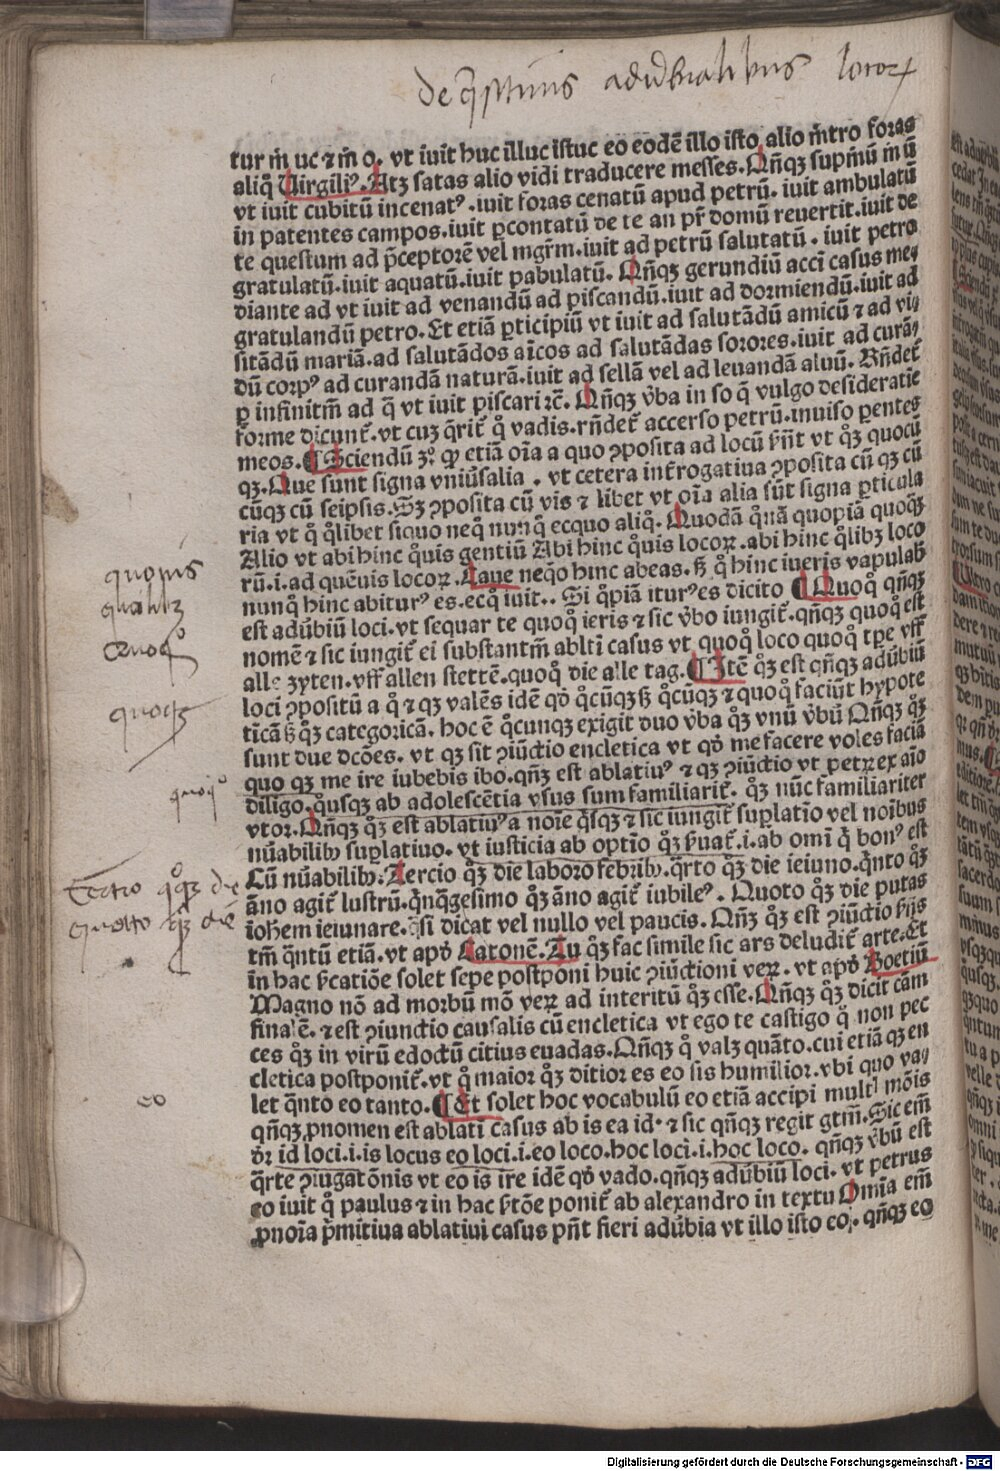 de q̄stiuis aduerbialibus locoꝝ
tur m̄ uc ⁊ m̄ o. vt iuit huc illuc istuc eo eodē illo isto alio m̄tro foras
aliq̊ Uirgiliꝰ. Atꝫ satas alio vidi traducere messes. Qn̄qꝫ supm̄ū m̄ ū
vt iuit cubitū incenatꝰ. iuit foras cenatū apud petrū. iuit ambulatū
in patentes campos. iuit ꝑcontatū de te an pr̄ domū reuertit. iuit de
te questum ad p̄ceptorē vel mgr̄m. iuit ad petrū salutatū. iuit petro
gratulatū. iuit aquatū. iuit pabulatū. Qn̄qꝫ gerundiū acci casus me⸗
diante ad vt iuit ad venandū ad piscandū. iuit ad dormiendū. iuit ad
gratulandū petro. Et etiā ꝑticipiū vt iuit ad salutādū amicū ⁊ ad vi⸗
sitādū mariā. ad salutādos aīcos ad salutādas sorores. iuit ad curā⸗
dū corpꝰ ad curandā naturā. iuit ad sellā vel ad leuandā aluū. Rn̄det̄
ꝑ infinitm̄ ad q̄ vt iuit piscari ꝛc̄. Qn̄qꝫ v̄ba in so q̄ vulgo desideratie
forme dicunt̄. vt cuꝫ q̄rit̄ q̊ vadis. rn̄det̄ accerso petrū. inuiso ꝑentes
meos. ¶ Sciendū ꝫ. ꝙ etiā oīa a quo ꝯposita ad locū ꝑn̄t vt q̊ꝫ quocū
qꝫ. Que sunt signa vniūsalia. vt cetera int̄rogatiua ꝯposita cū qꝫ cū
cūqꝫ cū seipsis. Sꝫ ꝯposita cū vis ⁊ libet vt oīa alia sūt signa ꝑticula
ria vt q̊ q̊libet siquo neq̊ nunq̊ ecquo aliq̊. Quodā q̊nā quopiā quoqꝫ
Alio vt abi hinc q̊uis gentiū Abi hinc q̊uis locoꝝ. abi hinc q̊libꝫ loco
rū. i. ad quēuis locoꝝ. Caue neq̊o hinc abeas. ꝑ q̊ hinc iueris vapulab̄
nunq̊ hinc abiturꝰ es. ecq̊ iuit.. Si q̊piā iturꝰ es dicito ¶ Quoq̊ qn̄qꝫ
est adūbiū loci. vt sequar te quoq̊ ieris ⁊ sic v̄bo iungit̄. qn̄qꝫ quoq̊ est
nomē ⁊ sic iungit̄ ei substantm̄ ablti casus vt quoq̊ loco quoq̊ tꝑe vff
alle zyten. vff allen stettē. quoq̊ die alle tag. ¶ Itē q̊ꝫ est qn̄qꝫ adūbiū
loci ꝯpositū a q̊ ⁊ qꝫ valēs idē qd̄ q̊cūqꝫ ꝑ q̊cūqꝫ ⁊ quoq̊ faciūt hypote
ticā ꝑ q̊ꝫ categoricā. hoc ē q̊cunqꝫ exigit duo v̄ba q̊ꝫ vnū v̄bū Qn̄qꝫ q̊ꝫ
sunt due dcōes. vt qꝫ sit ꝯiūctio encletica vt qd̄ me facere voles faciā
quo qꝫ me ire iubebis ibo. qn̄ꝫ est ablatiuꝰ ⁊ qꝫ ꝯiūctio vt petꝝ ex aīo
diligo. q̊usqꝫ ab adolescētia vsus sum familiarit̄. q̊ꝫ nūc familiariter
vtor. Qn̄qꝫ q̊ꝫ est ablatiuꝰ a noīe q̊sqꝫ ⁊ sic iungit̄ suꝑlatīo vel noībus
nūabilibꝰ suꝑlatiuo. vt iusticia ab optīo q̊ꝫ ẜuat̄. i. ab omī q̊ bonꝰ est
Cū nūabilibꝰ. Tercio q̊ꝫ die laboro febribꝰ. q̄rto q̊ꝫ die ieiuno. q̄nto q̊ꝫ
āno agit̄ lustrū. q̄nq̄gesimo q̊ꝫ āno agit̄ iubileꝰ. Quoto q̊ꝫ die putas
ioh̄em ieiunare. q̄si dicat vel nullo vel paucis. Qn̄ꝫ q̊ꝫ est ꝯiūctio ẜijs
tm̄ q̄ntū etiā. vt apd̄ Catonē. Tu q̊ꝫ fac simile sic ars deludit̄ arte. Et
in hac ẜcatiōe solet sepe postponi huic ꝯiūctioni veꝝ. vt apd̄ Boetiū
Magno nō ad morbū mō veꝝ ad interitū q̊ꝫ esse. Qn̄qꝫ q̊ꝫ dicit cām
finalē. ⁊ est ꝯiunctio causalis cū encletica vt ego te castigo q̊ non pec
ces q̊ꝫ in virū edoctū citius euadas. Qn̄qꝫ q̊ valꝫ quāto. cui etiā qꝫ en
cletica postponit̄. vt q̊ maior q̊ꝫ ditior es eo sis humilior. vbi quo va⸗
let q̄nto eo tanto. ¶ Et solet hoc vocabulū eo etiā accipi multˡ mōis
qn̄qꝫ ꝓnomen est ablati casus ab is ea id. ⁊ sic qn̄qꝫ regit gtm̄. Sic em̄
dr̄ id loci. i. is locus eo loci. i. eo loco. hoc loci. i. hoc loco. qn̄qꝫ v̄bū est
q̄rte ꝯiugatōnis vt eo is ire idē qd̄ vado. qn̄qꝫ adūbiū loci. vt petrus
eo iuit q̊ paulus ⁊ in hac ẜtōe ponit̄ ab alexandro in textu Omīa em̄
ꝓnoīa p̄mitiua ablatiui casus pn̄t fieri adūbia vt illo isto eo. qn̄qꝫ eo
quouis
Quoq̊
quoqꝫ
quoq̊
Tertio q̊qꝫ die
eo
Digitalisierung gefördert durch die Deutsche Forschungsgemeinschaft - DFG